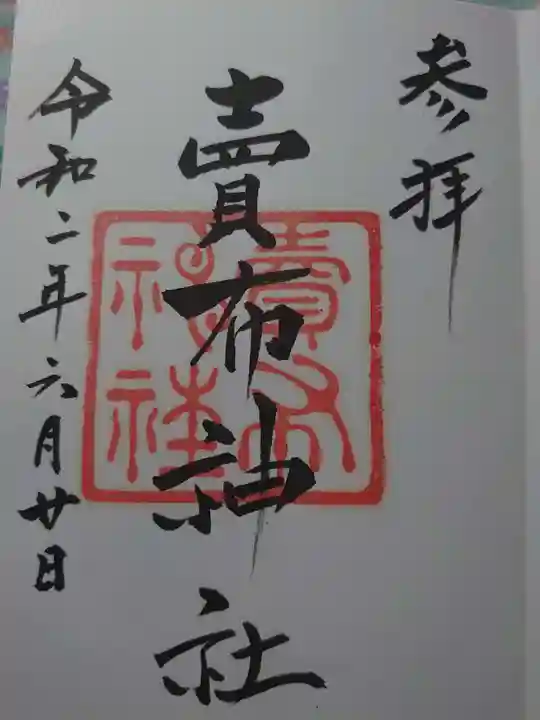 参拝
賣布神社
賣布
神社
令和二年六月廿日